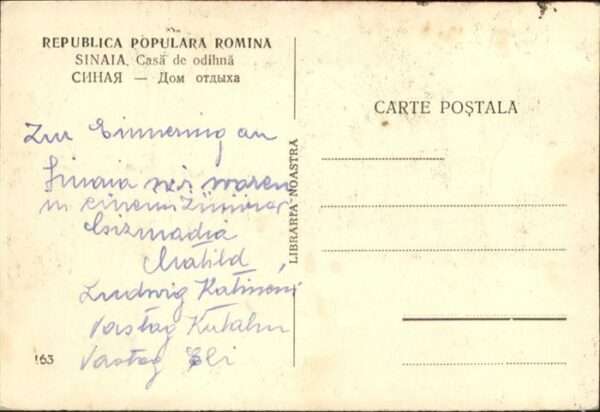 REPUBLICA POPULARA ROMINA
SINAIA, Casă de odihnă
СИНАЯ — Дом отдыха
CARTE POȘTALA
LIBRARIA NOASTRĂ
Zur Erinnering an
Sinaia wir waren
in einem Zimmer
Csizmadia
Matild
Ludwig
Vastag
Vastag Eli
163